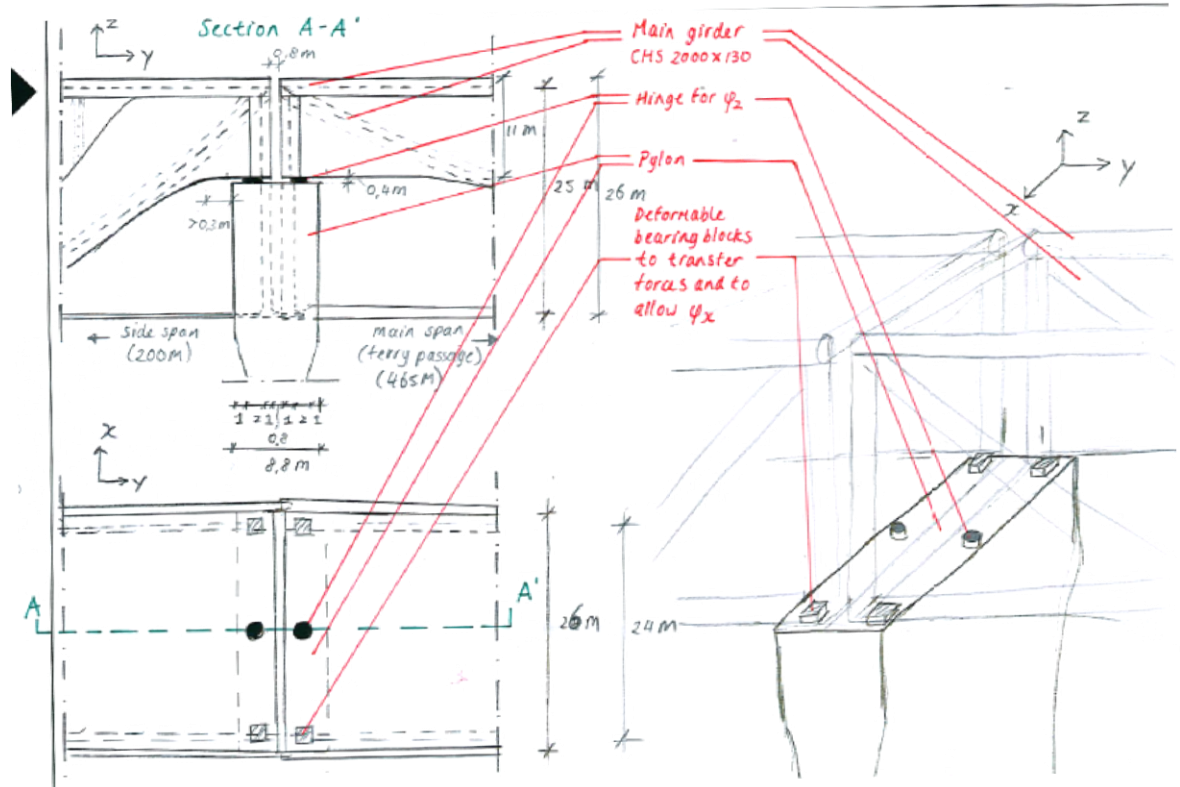 Section A-A'
z
y
0,8m
Main girder
CHS 2000x130
Hinge for φz
Pylon
Deformable
bearing blocks
to transfer
forces and to
allow φx
11m
25 m
26m
0,4m
>0,3m
side span
(200m)
main span
(ferry passage)
(465m)
1 2 1 1 2 1
0,8
8,8 m
x
y
A
A'
26m
24m
z
y
x